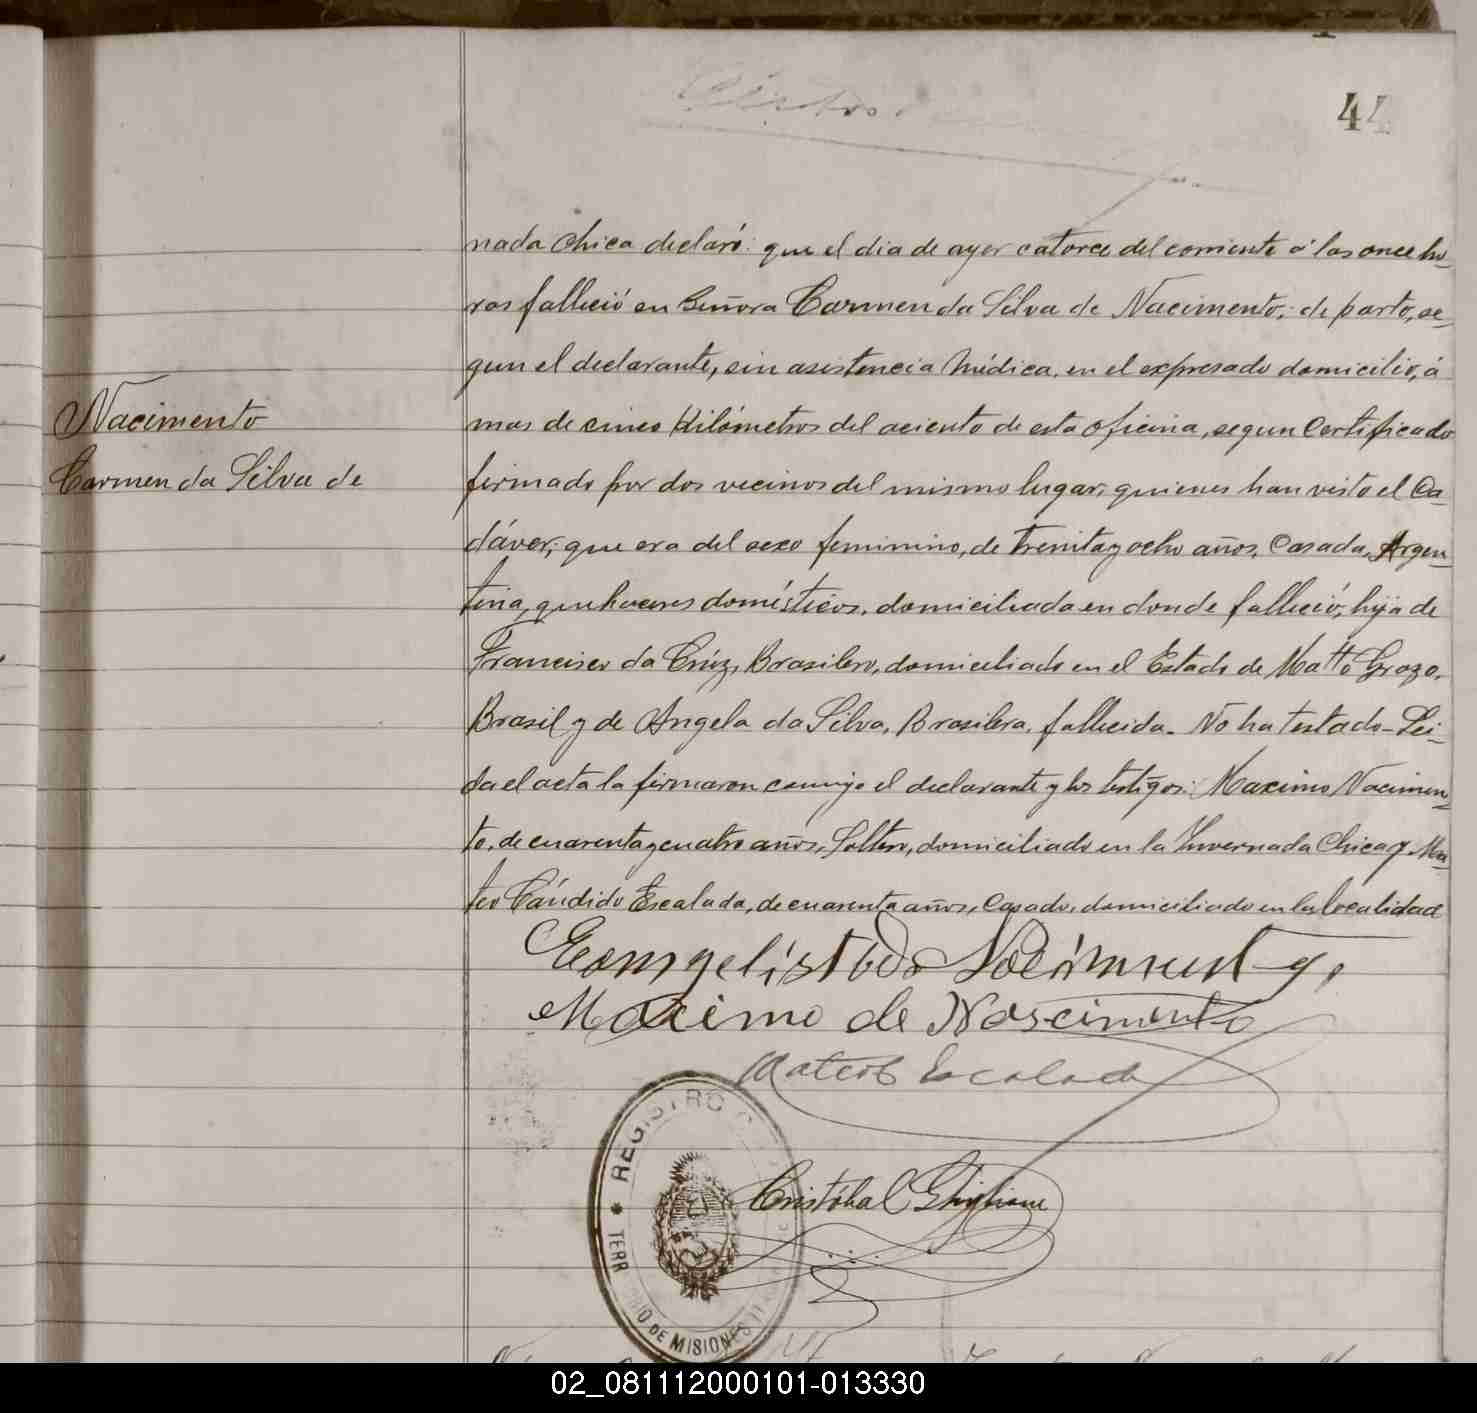 44
nada Chica declaró: que el dia de ayer catorce del corriente á las once ho-
ras falleció en Señora Carmen da Silva de Nacimento; de parto, se-
gun el declarante, sin asistencia Médica, en el expresado domicilio, á
mas de cinco Kilómetros del aciento de esta oficina, segun Certificado
Nacimento
Carmen da Silva de
firmado por dos vecinos del mismo lugar, quienes han visto el Ca-
dáver; que era del sexo feminino, de treinta y ocho años, Casada, Argen-
tina, quehaceres domésticos, domiciliada en donde falleció, hija de
Francisco da Crúz, Brasilero, domiciliado en el Estado de Matto Grozo,
Brasil y de Angela da Silva, Brasilera, fallecida. No ha testado- Lei-
da el acta la firmaron conmigo el declarante y los testigos: Maximo Nacimen-
to, de cuarenta y cuatro años, Soltero, domiciliado en la Invernada Chica y Ma-
teo Cándido Escalada, de cuarenta años, Casado, domiciliado en la localidad
Maximo de Nascimento
Mateos Escalada
Cristóbal Ghiglione
REGISTRO
TERRITORIO DE MISIONES
02_081112000101-013330